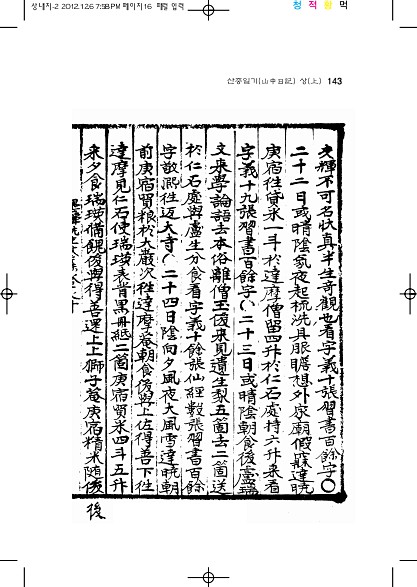 상내지-2 2012.12.6 7:58 PM 페이지16 패럴 입력
청 적 황 먹
산중일기(山中日記) 상(上) 143
文輝不可名狀真半生奇觀也看字義十張習書百餘字○
二十二日或晴陰氣夜起梳洗具服瞻想外家廟假寐達曉
庚宿往貸米一斗於達摩僧留四升於仁石處持六升來看
字義十九張習書百餘字○二十三日或晴陰朝食後盧
文來學論語去本俗離僧玉俊來見遺生梨五箇去二箇送
於仁石處與盧生分食看字義十餘張仙經數張習書百餘
字敬熙往迎大寺○二十四日陰向夕風夜大風雪達曉朝
前庚宿貿粮於大嚴次往達摩菴朝食後與上佐得善下往
達摩見仁石使瑞璜表背黑冊紙二箇庚宿貿米四斗五升
來夕食瑞璜備饋後與得善還上上獅子菴庚宿精米隨後
後